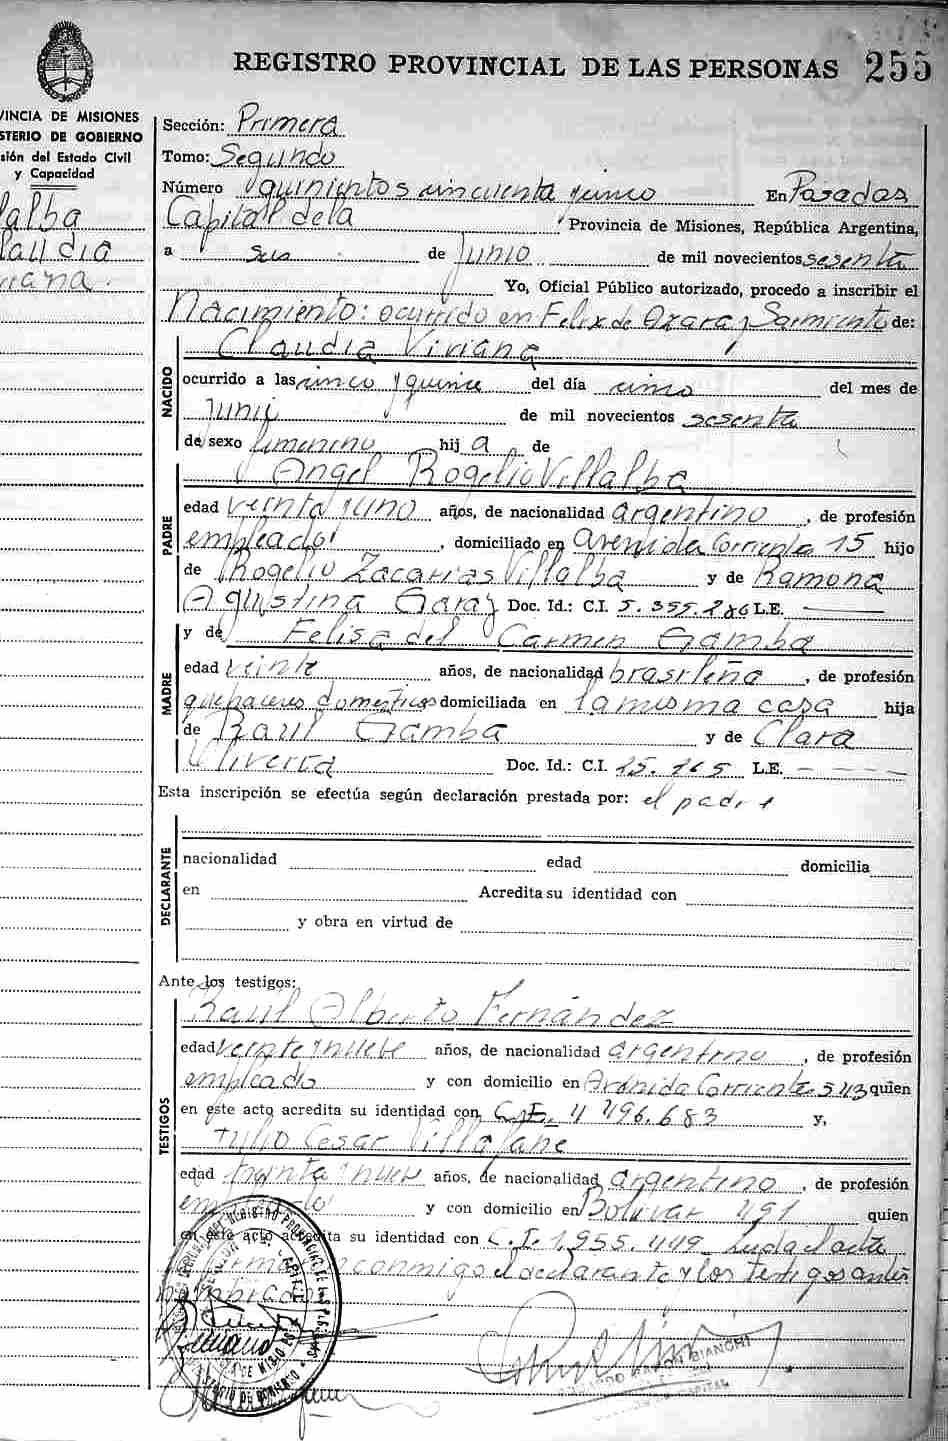 REGISTRO PROVINCIAL DE LAS PERSONAS 255
VINCIA DE MISIONES
STERIO DE GOBIERNO
sión del Estado Civil
y Capacidad
lalba
laudia
viana.
Sección: Primera
Tomo: Segundo
Número quinientos cincuenta y cinco En Posadas
Capital de la Provincia de Misiones, República Argentina,
a seis de Junio de mil novecientos sesenta
Yo, Oficial Público autorizado, procedo a inscribir el
Nacimiento: ocurrido en Felix de Azara y Sarmiento de:
NACIDO
Claudia Viviana
ocurrido a las cinco y quince del día cinco del mes de
Junio de mil novecientos sesenta
de sexo femenino hij a de
PADRE
Angel Rogelio Villalba
edad veinta y uno años, de nacionalidad argentino, de profesión
empleado, domiciliado en Avenida Corrientes 15 hijo
de Rogelio Zacarias Villalba y de Ramona
Agustina Garay Doc. Id.: C.I. 5.395.286 L.E.
MADRE
y de Felisa del Carmen Gamba
edad veinte años, de nacionalidad brasileña, de profesión
quehaceres domésticos domiciliada en la misma casa hija
de Raul Gamba y de Clara
Oliveira Doc. Id.: C.I. 25.765 L.E.
Esta inscripción se efectúa según declaración prestada por: el padre
DECLARANTE
nacionalidad edad domicilia
en Acredita su identidad con
y obra en virtud de
Ante los testigos:
TESTIGOS
Raúl Alberto Fernández
edad veinte y nueve años, de nacionalidad argentino, de profesión
empleado y con domicilio en Avenida Corrientes 543 quien
en este acto acredita su identidad con C.I. 4 496.683 y,
Tulio Cesar Villafañe
edad treinta y nueve años, de nacionalidad argentino, de profesión
empleado y con domicilio en Bolivar 491 quien
en este acto acredita su identidad con C.I. 1.955.449 Leida el acta
firman conmigo el declarante y los testigos antes
nombrados
RAMON BIANCHI